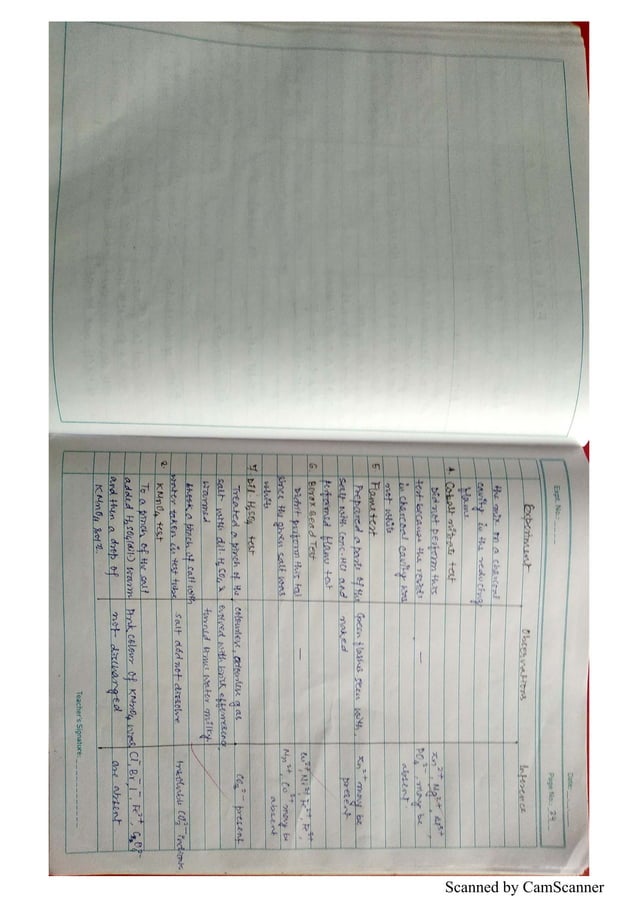 Expt. No.
Date
Page No. 24
Experiment Observations Inference
the mix on a charcoal
cavity in the reducing
flame
4. Cobalt nitrate test
Did not perform this
test because the residue
in charcoal cavity was
not white
—
Zn2+, Mg2+, Al3+,
PO43-, may be
absent
5 Flame test
Prepared a paste of the
salt with conc. HCl and
performed flame test
Green flashes seen with
naked
Zn2+ may be
present
6. Borax Bead Test
Didn't perform this test
since the given salt was
white
—
Cu2+, Ni2+, Fe2+, Fe3+,
Mn2+, Co2+ may be
absent
7. Dil. H2SO4 test
Treated a pinch of the
salt with dil. H2SO4 &
warmed
colourless, odourless gas
evolved with brisk effervescence
turned lime water milky
CO32- present
Shook a pinch of salt with
water taken in test tube
salt did not dissolve
Insoluble CO32- indicate
8. KMnO4 test
To a pinch of the salt
added H2SO4(dil) warm
and then a drop of
KMnO4 soln.
Pink colour of KMnO4 was
not discharged
Cl-, Br-, I-, Fe2+, C2O42-
are absent
Teacher's Signature:
Scanned by CamScanner